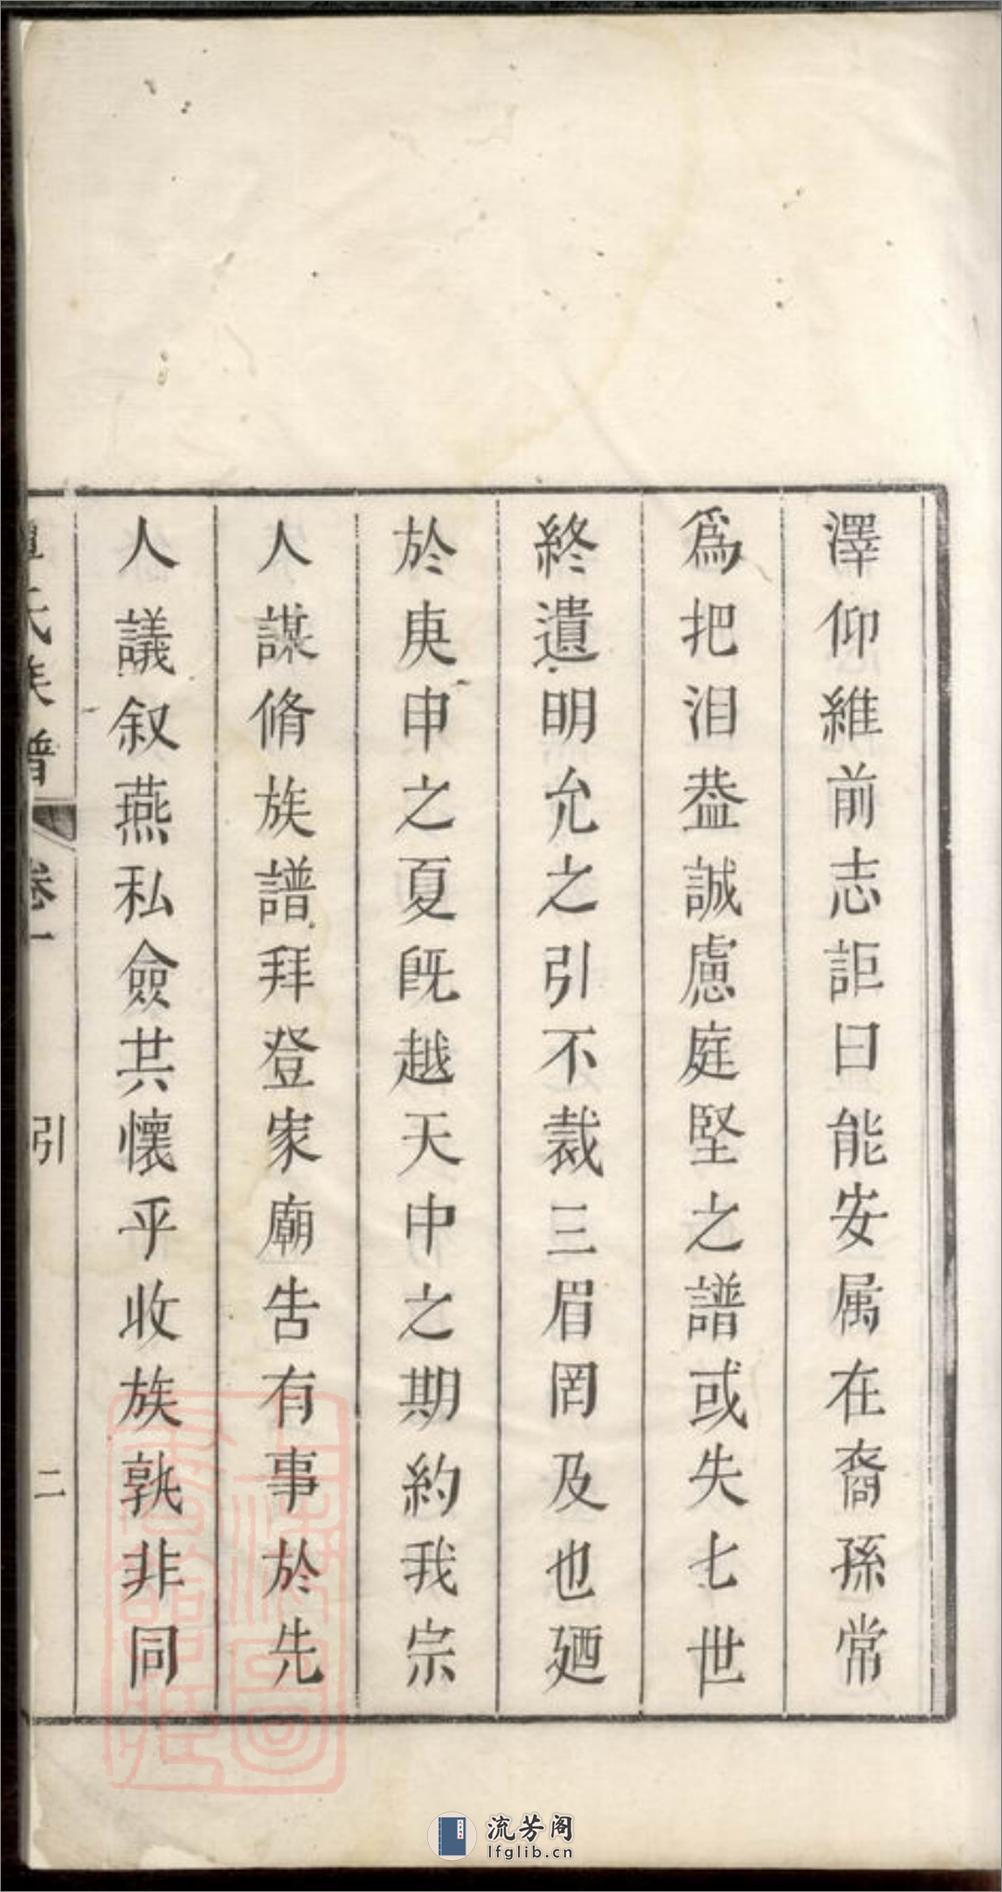 澤仰維前志詎曰能安属在裔孫常
爲把泪葢誠慮庭堅之譜或失七世
終遺明允之引不裁三眉罔及也廼
於庚申之夏旣越天中之期約我宗
人謀脩族譜拜登家廟告有事於先
人議叙燕私僉共懷乎收族孰非同
氏族譜 卷一 引 二
流芳阁
lfglib.cn